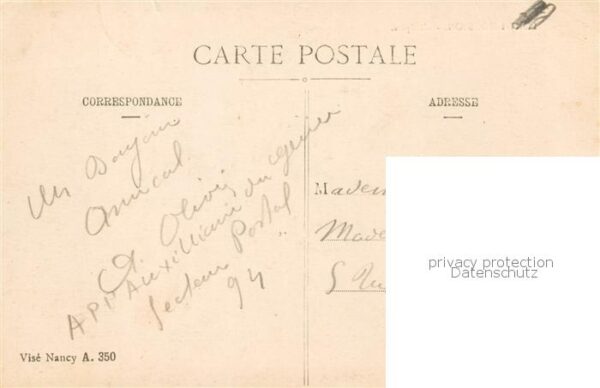 CARTE POSTALE
CORRESPONDANCE
ADRESSE
Un Bonjour
Amical
Olivier
Auxilliaire du génie
Secteur Postal
94
Madem
Made
5 Ru
privacy protection
Datenschutz
Visé Nancy A. 350